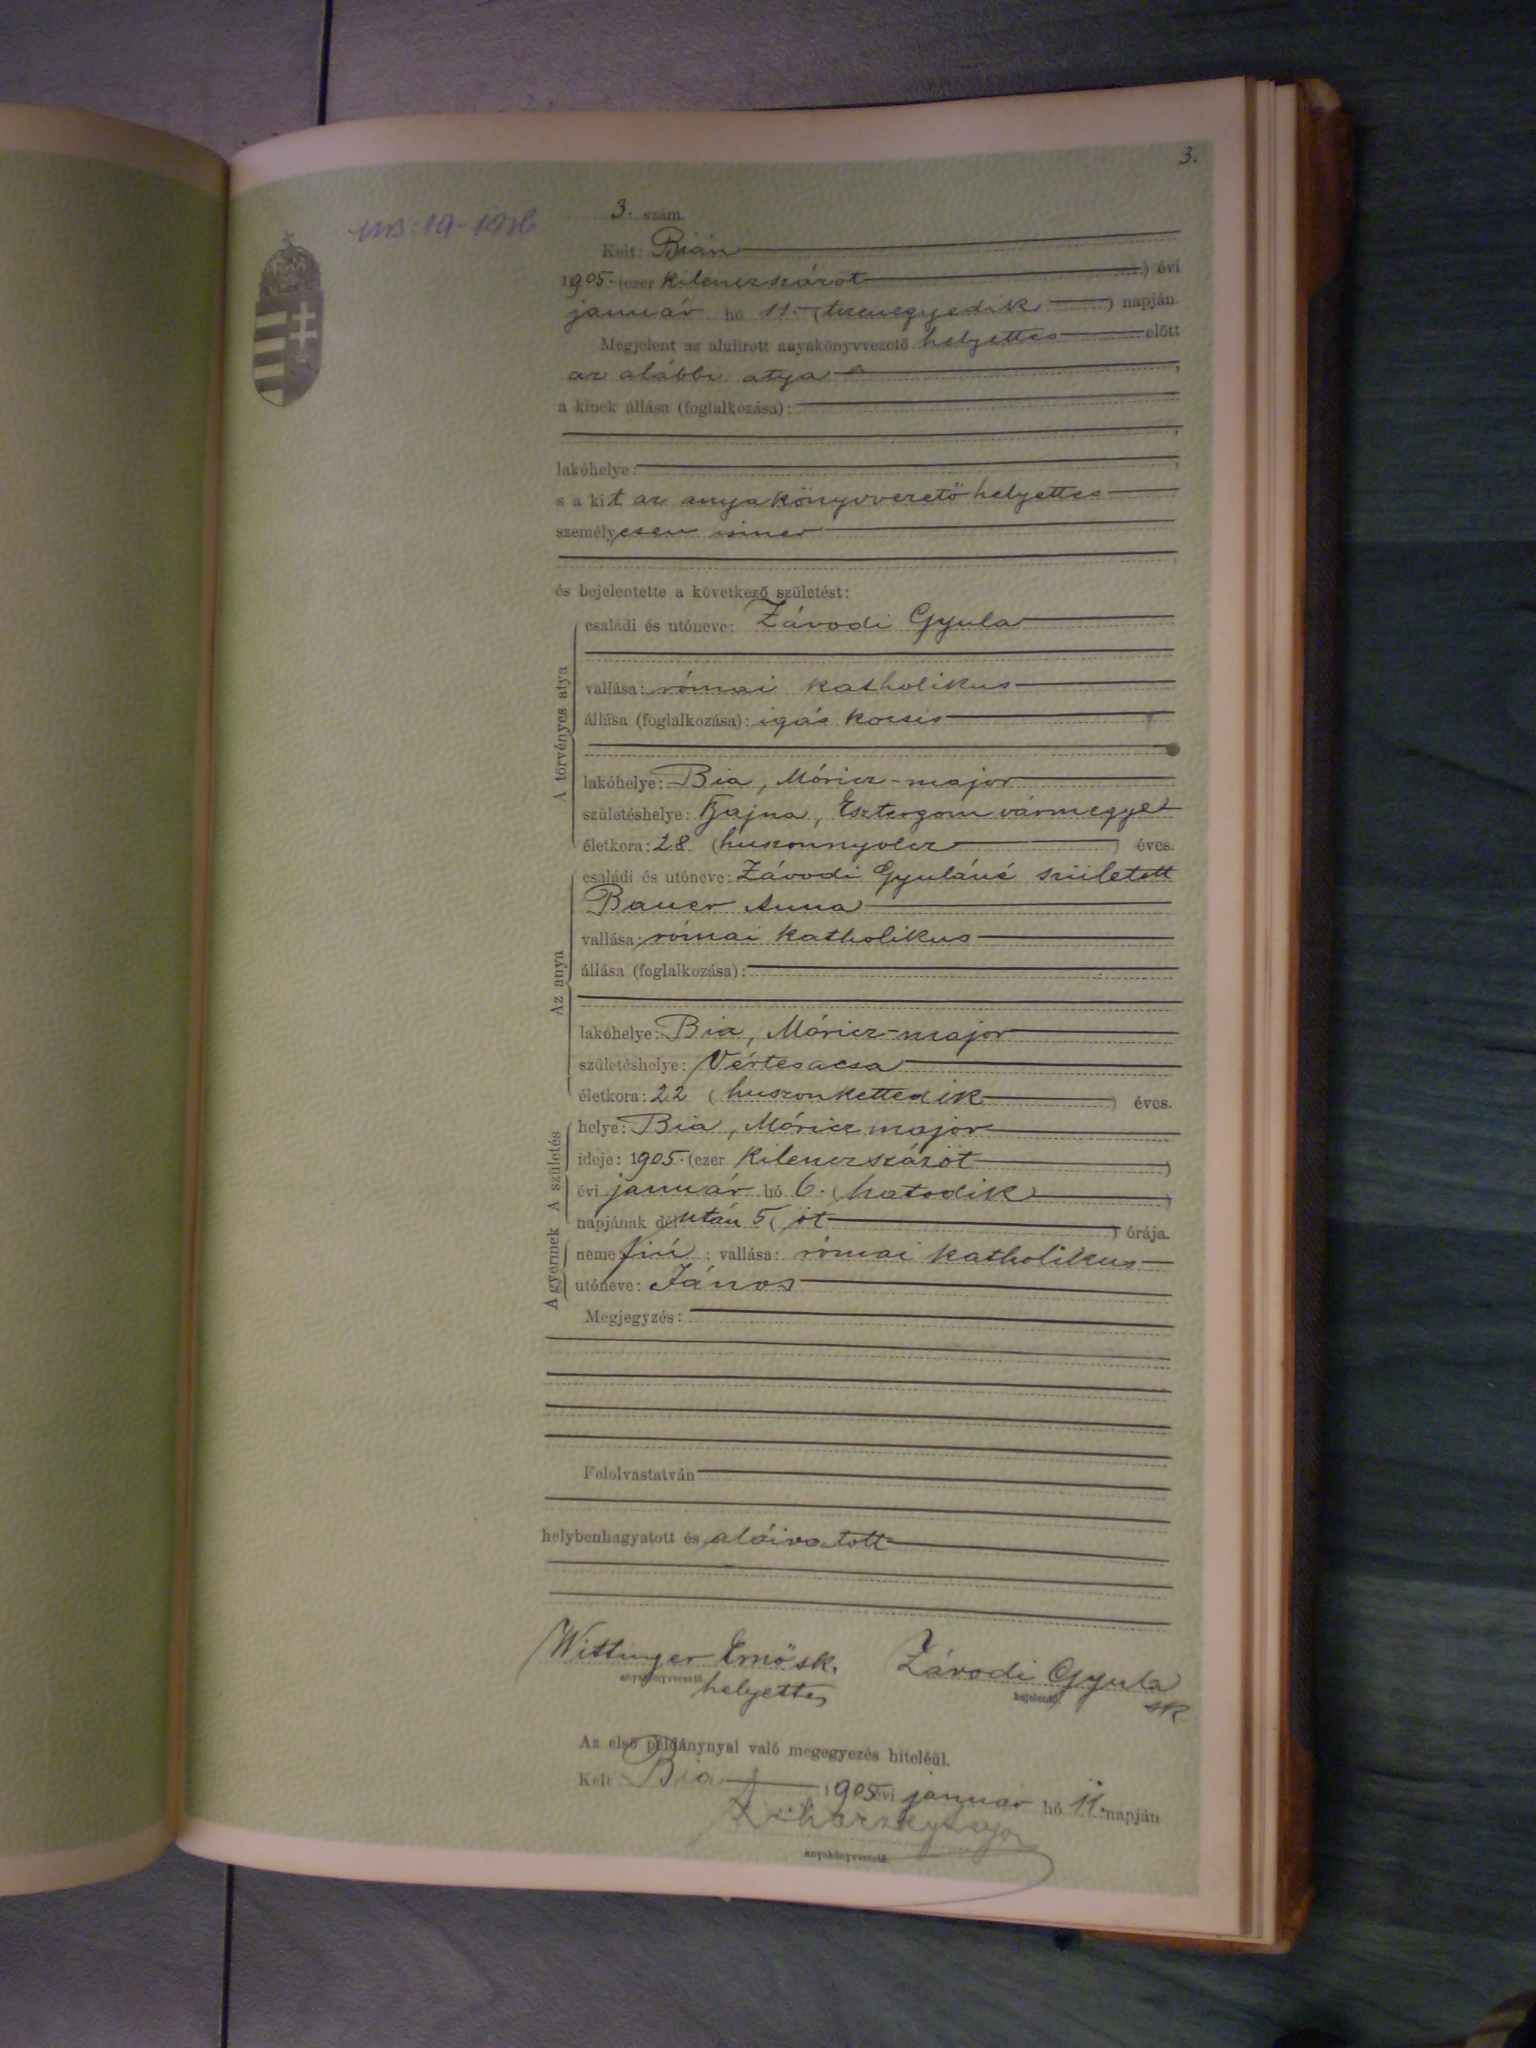 3.
3. szám.
Kelt: Bián
1905. (ezer kilenczszázöt ) évi
január hó 11. (tizenegyedik ) napján.
Megjelent az alulirott anyakönyvvezető helyettes előtt
az alábbi atya ,
a kinek állása (foglalkozása):
,
lakóhelye: ,
s a kit az anyakönyvvezető helyettes
személyesen ismer
és bejelentette a következő születést:
A törvényes atya
családi és utóneve: Závodi Gyula
vallása: római katholikus
állása (foglalkozása): igás kocsis
lakóhelye: Bia, Móricz-major
születéshelye: Bajna, Esztergom vármegye
életkora: 28 (huszonnyolcz ) éves.
Az anya
családi és utóneve: Závodi Gyuláné született
Bauer Anna
vallása: római katholikus
állása (foglalkozása):
lakóhelye: Bia, Móricz-major
születéshelye: Vértesacsa
életkora: 22 (huszonkettedik ) éves.
A születés
helye: Bia, Móricz major
ideje: 1905. (ezer kilenczszázöt )
évi január hó 6. (hatodik )
napjának délután 5 (öt ) órája.
A gyermek
neme fiú ; vallása: római katholikus
utóneve: János
Megjegyzés:
Felolvastatván
helybenhagyatott és aláiratott
Wittinger Ernő sk. Závodi Gyula
anyakönyvvezető bejelentő
helyettes sk
Az első példánynyal való megegyezés hiteléül.
Kelt Bia 1905 évi január hó 11. napján
anyakönyvvezető